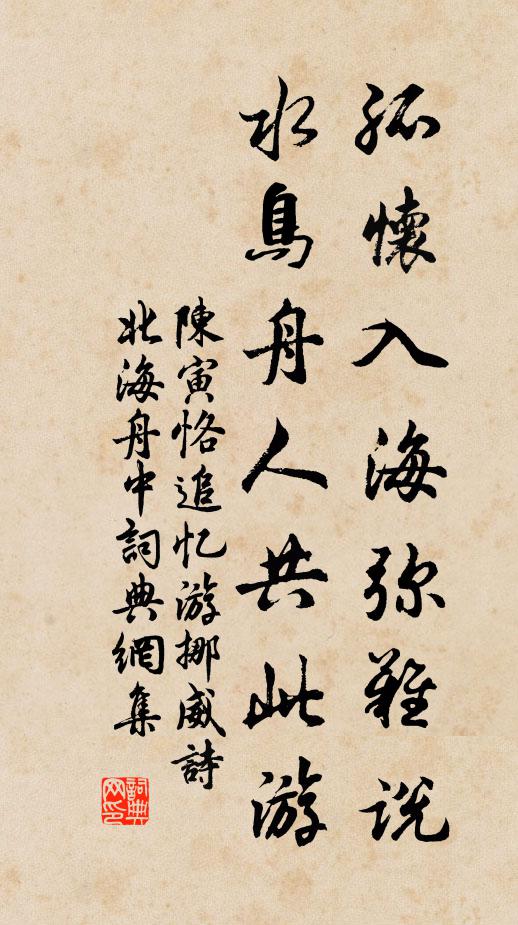 孤懷入海弥難說
水鳥舟人共此游
陳寅恪追忆游挪威詩
北海舟中詞典網集
詞典
网印